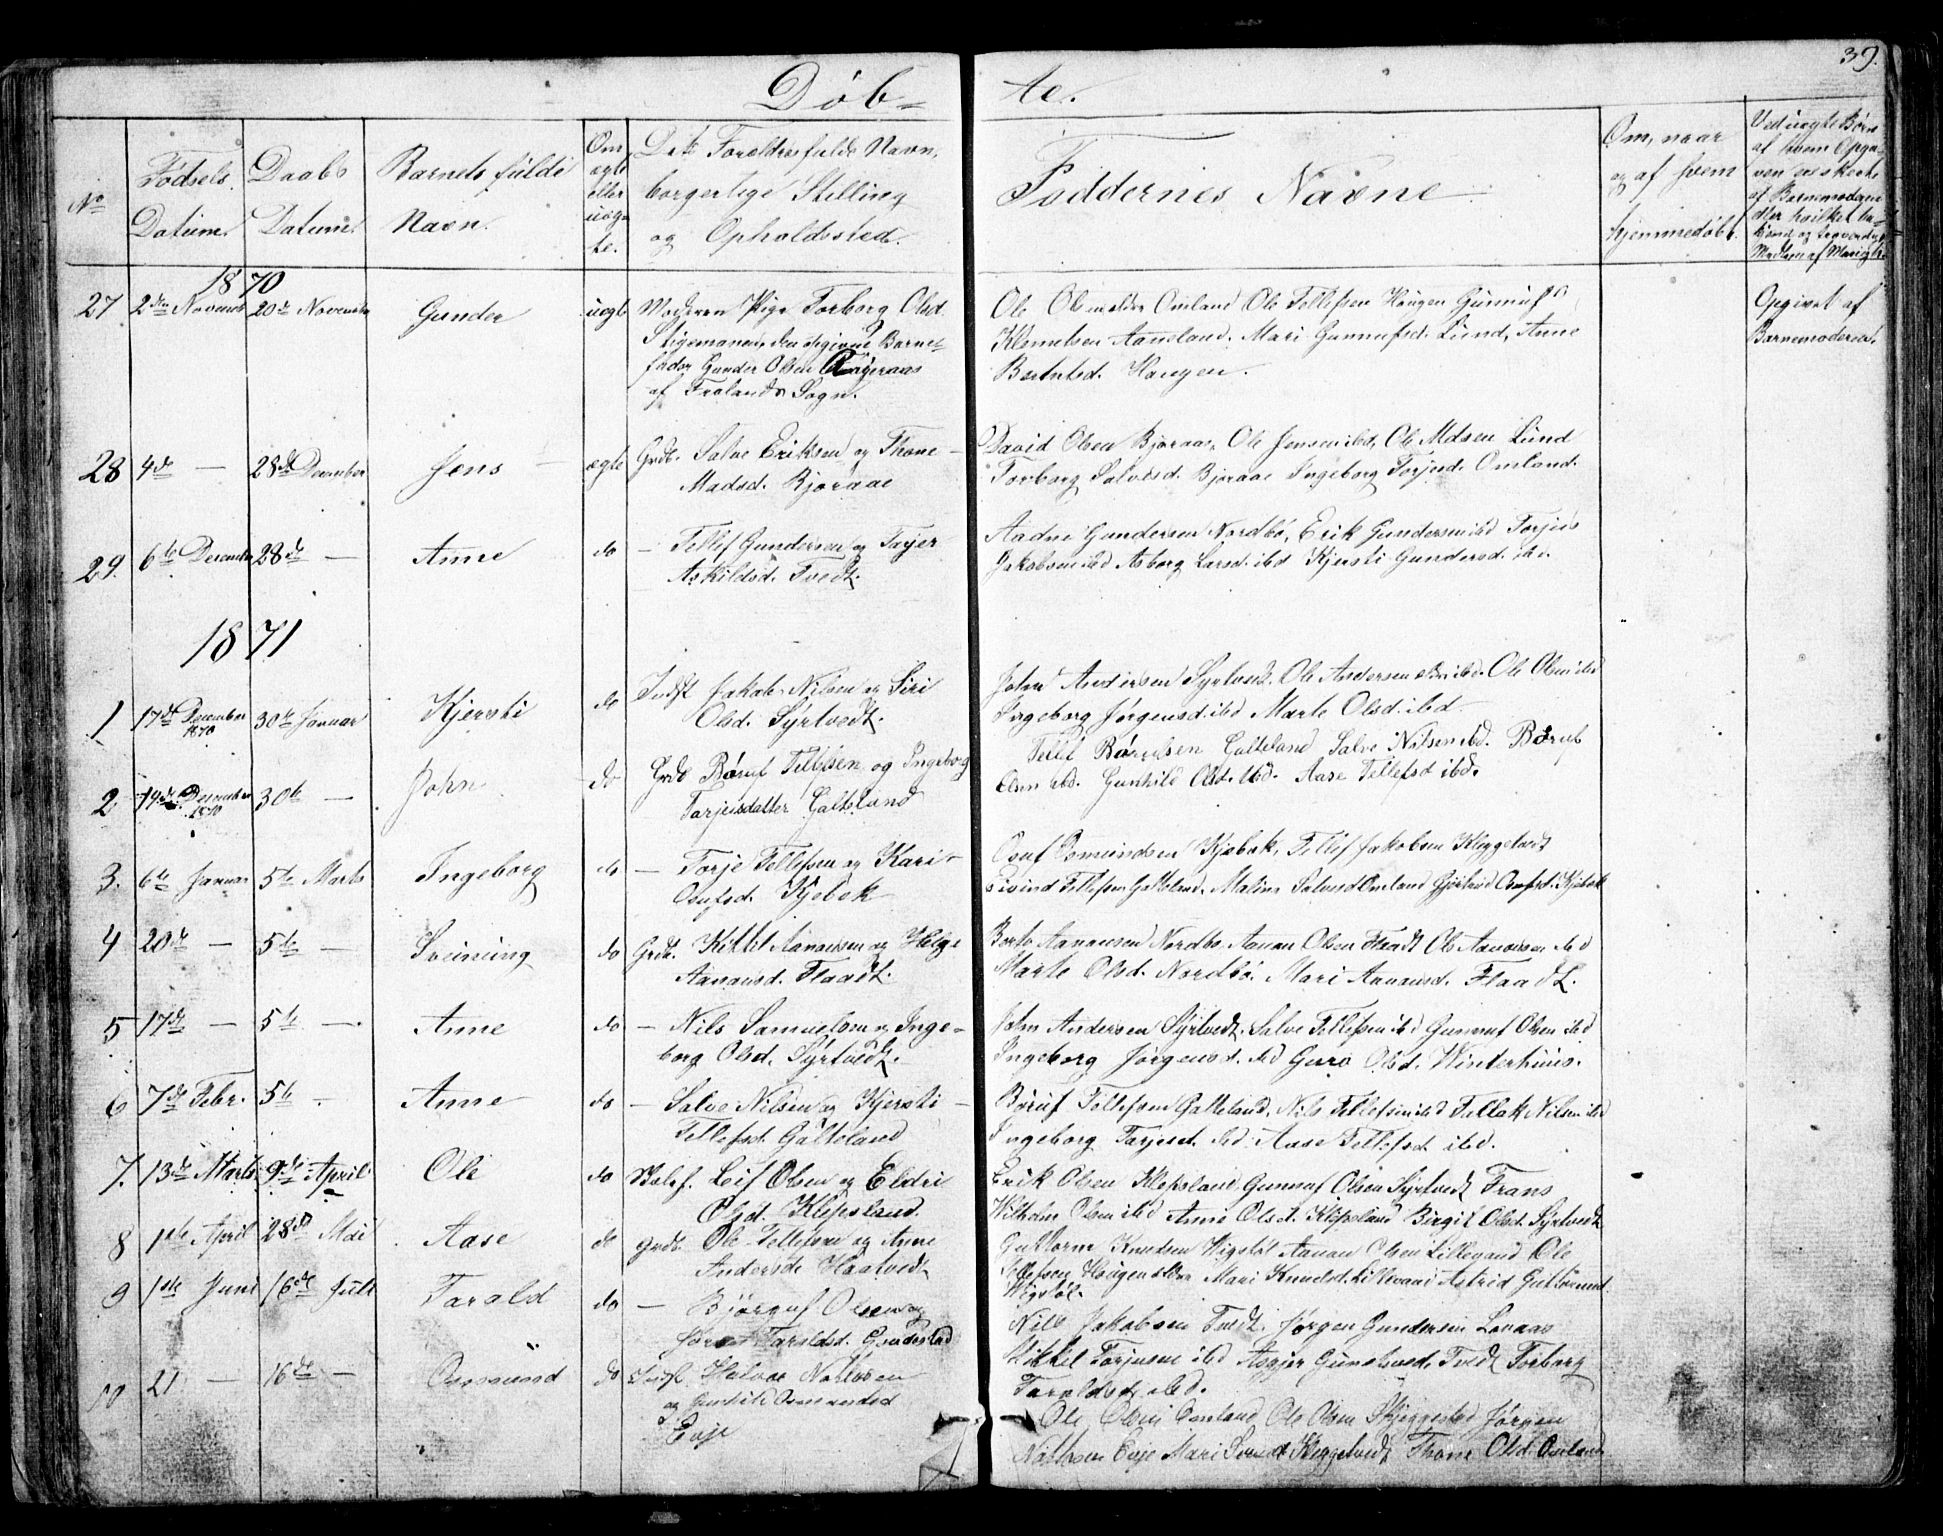 39.
Døb-
te.
No
Fødsels Datum.
Daabs Datum.
Barnets fulde Navn.
Om ægte eller uægte.
Dets Forældres fulde Navn, borgerlige Stilling og Opholdssted.
Faddernes Navne
Om, naar og af hvem hjemmedøbt.
Ved uægte Børn af hvem Opgaven er skeet
af Barnemoderen eller hvilket
1870
27 2den Novemb 20de November Gunder uægte Moderen Pige Torborg Olsd.
Stigemanen, den opgivne Barne-
fader Gunder Olsen
af Frolands Sogn.
Ole Olsen ældre Omland Ole Tellefsen Haugen Gunnuf
Klemetsen Aaneland. Mari Gunnufsd. Lund, Anne
Berntsd. Haugen.
Opgivet af
Barnemoderen.
28 4de — 28de December Jens ægte Grdb. Salve Eriksen og Thone
Madsd. Bjoraae
David Olsen Bjoraae, Ole Jensen ibd, Ole Madsen Lund
Torborg Salvesd. Bjoraae Ingeborg Torjusd. Omland.
29. 6te December 28de — Anne do — Tellef Gundersen og Torjer
Askildsd. Tvedt.
Aadne Gundersen Nordbø, Erik Gundersen ibd Torjus
Jakobsen ibd Asborg Larsd. ibd Kjersti Gundersd. ibd.
1871
1 17de December 1870 30te Januar Kjersti do Indst Jakob Nilsen og Siri
Olsd. Syrtvedt.
John Andersen Syrtvedt. Ole Andersen ibd. Ole Olsen ibd
Ingeborg Jørgensd. ibd Marte Olsd. ibd
2 14de December 1870 30te — John do Grdb Børuf Tellefsen og Ingeborg
Tarjeisdatter Galteland
Tellef Børufsen Galteland Salve Nilsen ibd. Børuf
Olsen ibd. Gunhild Olsd. ibd. Aase Tellefsd ibd.
3. 6te Januar 5te Marts Ingeborg do — Torje Tellefsen og Kari
Osufsd. Kjebek
Osuf Osmundsen Kjebek, Tellef Jakobsen Kleggetvedt
Eivind Tellefsen Galteland, Malene Salvesd Omland Osufsd. Kjebek
4 20de — 5te — Svenning do Grdb. Kittel Aanansen og Helge
Aanansd. Flaadt.
Aanansen Nordbø Aanan Olsen Flaadt Ole Aanansen ibd
Marte Olsd. Nordbø. Mari Aanansd. Flaadt.
5 17de — 5te —. Anne do — Nils Samuelsen og Inge-
borg Olsd. Syrtvedt.
John Andersen Syrtvedt. Salve Tellefsen ibd Gunnuf Olsen ibd
Ingeborg Jørgensd. ibd Guro Olsd. Winterhuus.
6 7de Febr. 5te — Anne do — Salve Nilsen og Kjersti
Tellefsd. Galteland
Børuf Tellefsen Galteland. Nils Tellefsen ibd Tellak Nilsen ibd
Ingeborg Tarjesd. ibd. Aase Tellefsd ibd.
7. 13de Marts 9de April Ole do Leif Olsen og Eldri
Olsd. Klepsland.
Erik Olsen Klepsland Gunnuf Olsen Syrtvedt Frans
Wilhelm Olsen ibd Anne Olsd. Klepsland Birgit Olsd. Syrtvedt
8 1ste April 28de Mai Aase do Grdb. Ole Tellefsen og Anne
Andersd. Haatvedt
Guttorm Knudsen Wigstøl Aanan Olsen Lillegaard Ole
Tellefsen Haugen Mari Knudsd. Astrid Guttormsd
Wigstøl.
9 1ste Juni 16de Juli Tarald do — Bjørguf Olsen og
Taraldsd.
Nils Jakobsen Tvedt. Jørgen Gundersen Lonaas
Mikkel Torjusen ibd Asgjer Gunstensd. Tvedt Torborg
Taraldsd. ibd.
10 21 — 16de — Osmund do Halvor Nathsen
og Gunhild Osmundsd
Evje
Ole Olsen Omland Ole Olsen Skjeggestad Jørgen
Nathsen Evje Mari Kleggetvedt Thone Olsd. Omland